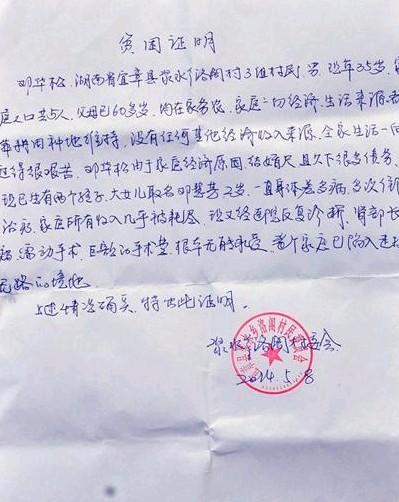 贫困证明
邓华松,湖南省宜章县浆水乡洛阁村3组村民,男,现年35岁,家
庭人口共5人,父母已60多岁,均在家务农,家庭一切经济、生活来源
耕田种地维持,没有任何其他经济收入来源,全家生活一向
过得很艰苦。邓华松由于家庭经济原因,结婚尺且欠下很多债务,
现已生有两个孩子,大女儿取名邓慧 2岁,一直身体差多病,多次
治疗,家庭所有收入几乎被耗尽,现又经医院反复诊断,肾部长
瘤,需动手术,巨额的手术费,根本无能承受,整个家庭已陷入
无路的境地
上述情况确实,特出此证明。
浆水乡洛阁村委会
2014.5.8